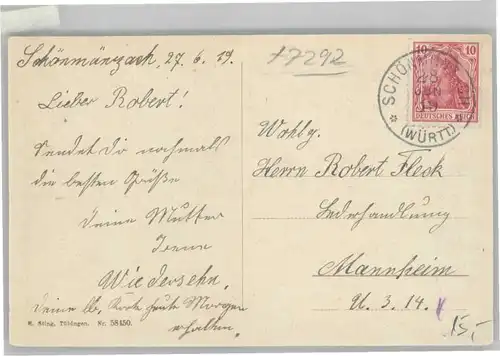 Schönmünzach, 27.6.19.
Lieber Robert!
Sendet Dir nochmals
die besten Grüße
Deine Mutter
Irene
Wiedersehn.
Deine lb. Karte heute Morgen
erhalten.
M. Sting, Tübingen. Nr. 58450.
+7292
10 10
DEUTSCHES REICH
SCHÖNMÜNZACH
(WÜRTT.)
Wohlg.
Herrn Robert Fleck
Lederhandlung
Mannheim
U. 3. 14.
15,-